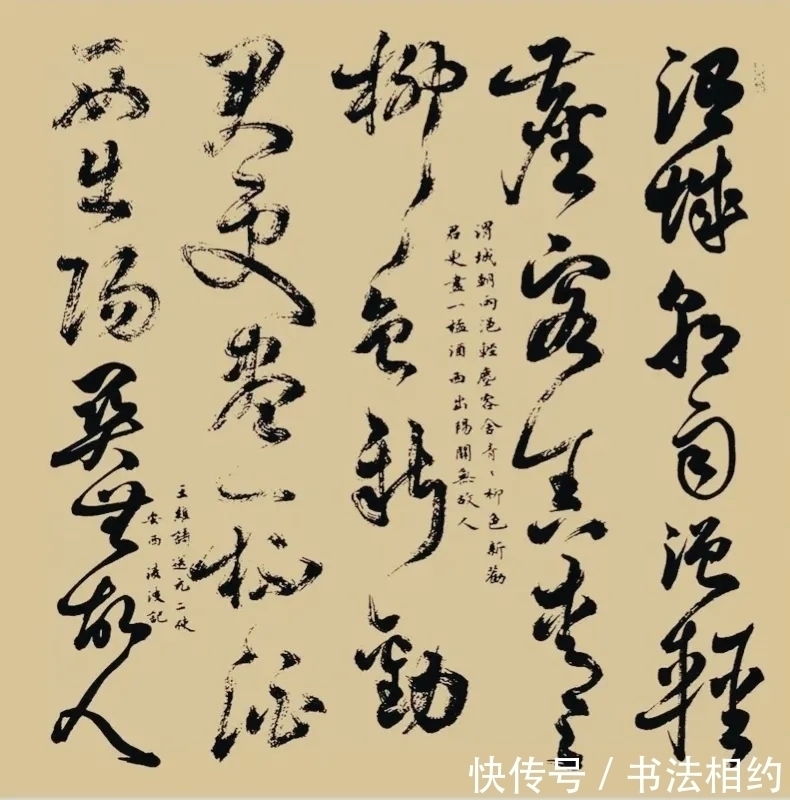 渭城朝雨浥輕
塵客舍青々
柳々色新勸
君更盡一杯酒
西出陽關無故人
渭城朝雨浥輕塵客舍青々柳色新勸
君更盡一杯酒西出陽關無故人
王維詩送元二使
安西
記
快传号 / 书法相约